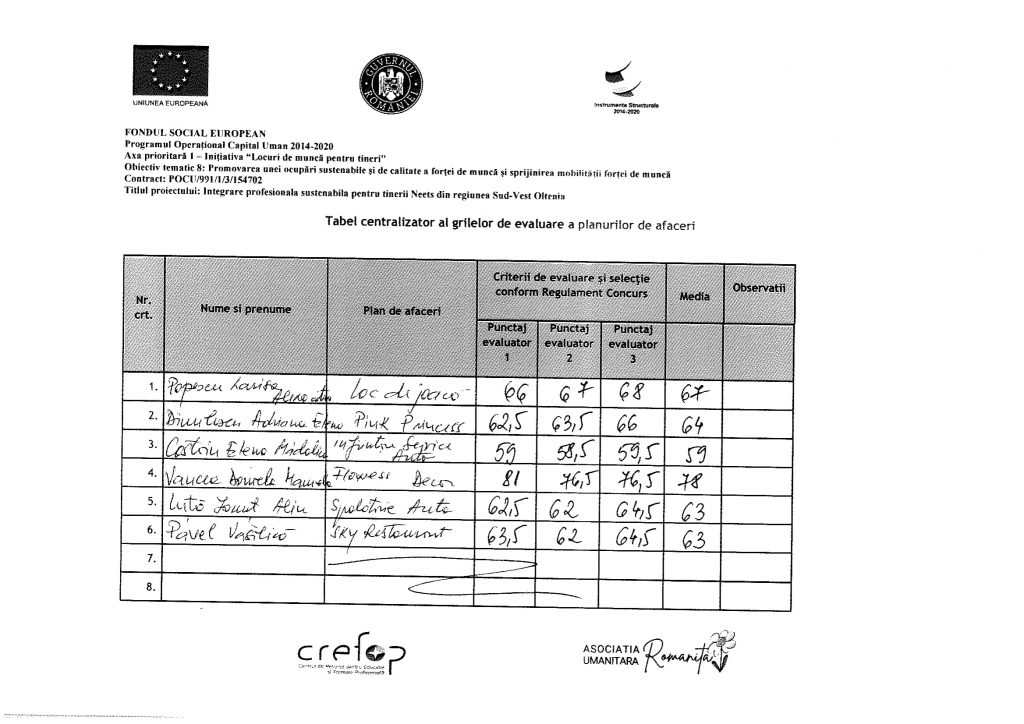 UNIUNEA EUROPEANĂ
GUVERNUL ROMÂNIEI
Instrumente Structurale
2014-2020
FONDUL SOCIAL EUROPEAN
Programul Operațional Capital Uman 2014-2020
Axa prioritară 1 – Inițiativa “Locuri de muncă pentru tineri”
Obiectiv tematic 8: Promovarea unei ocupări sustenabile și de calitate a forței de muncă și sprijinirea mobilității forței de muncă
Contract: POCU/991/1/3/154702
Titlul proiectului: Integrare profesionala sustenabila pentru tinerii Neets din regiunea Sud-Vest Oltenia
Tabel centralizator al grilelor de evaluare a planurilor de afaceri
Nr. crt. Nume si prenume Plan de afaceri Criterii de evaluare și selecție conform Regulament Concurs Media Observatii
Punctaj evaluator 1 Punctaj evaluator 2 Punctaj evaluator 3
1. Popescu Larisa Loc de joacă 66 67 68 67
2. Dimulescu Adriana Elena Pink Princess 62,5 63,5 66 64
3. Elena Mădălina Service Auto 59 58,5 59,5 59
4. Vancea Daniela Manuela Flowers Decor 81 76,5 76,5 78
5. Ionuț Alin Spălătorie Auto 62,5 62 64,5 63
6. Pavel Vasilică Sky Restaurant 63,5 62 64,5 63
7.
8.
crefop
Centrul de Resurse pentru Educație
și Formare Profesională
ASOCIATIA
UMANITARA Romanița